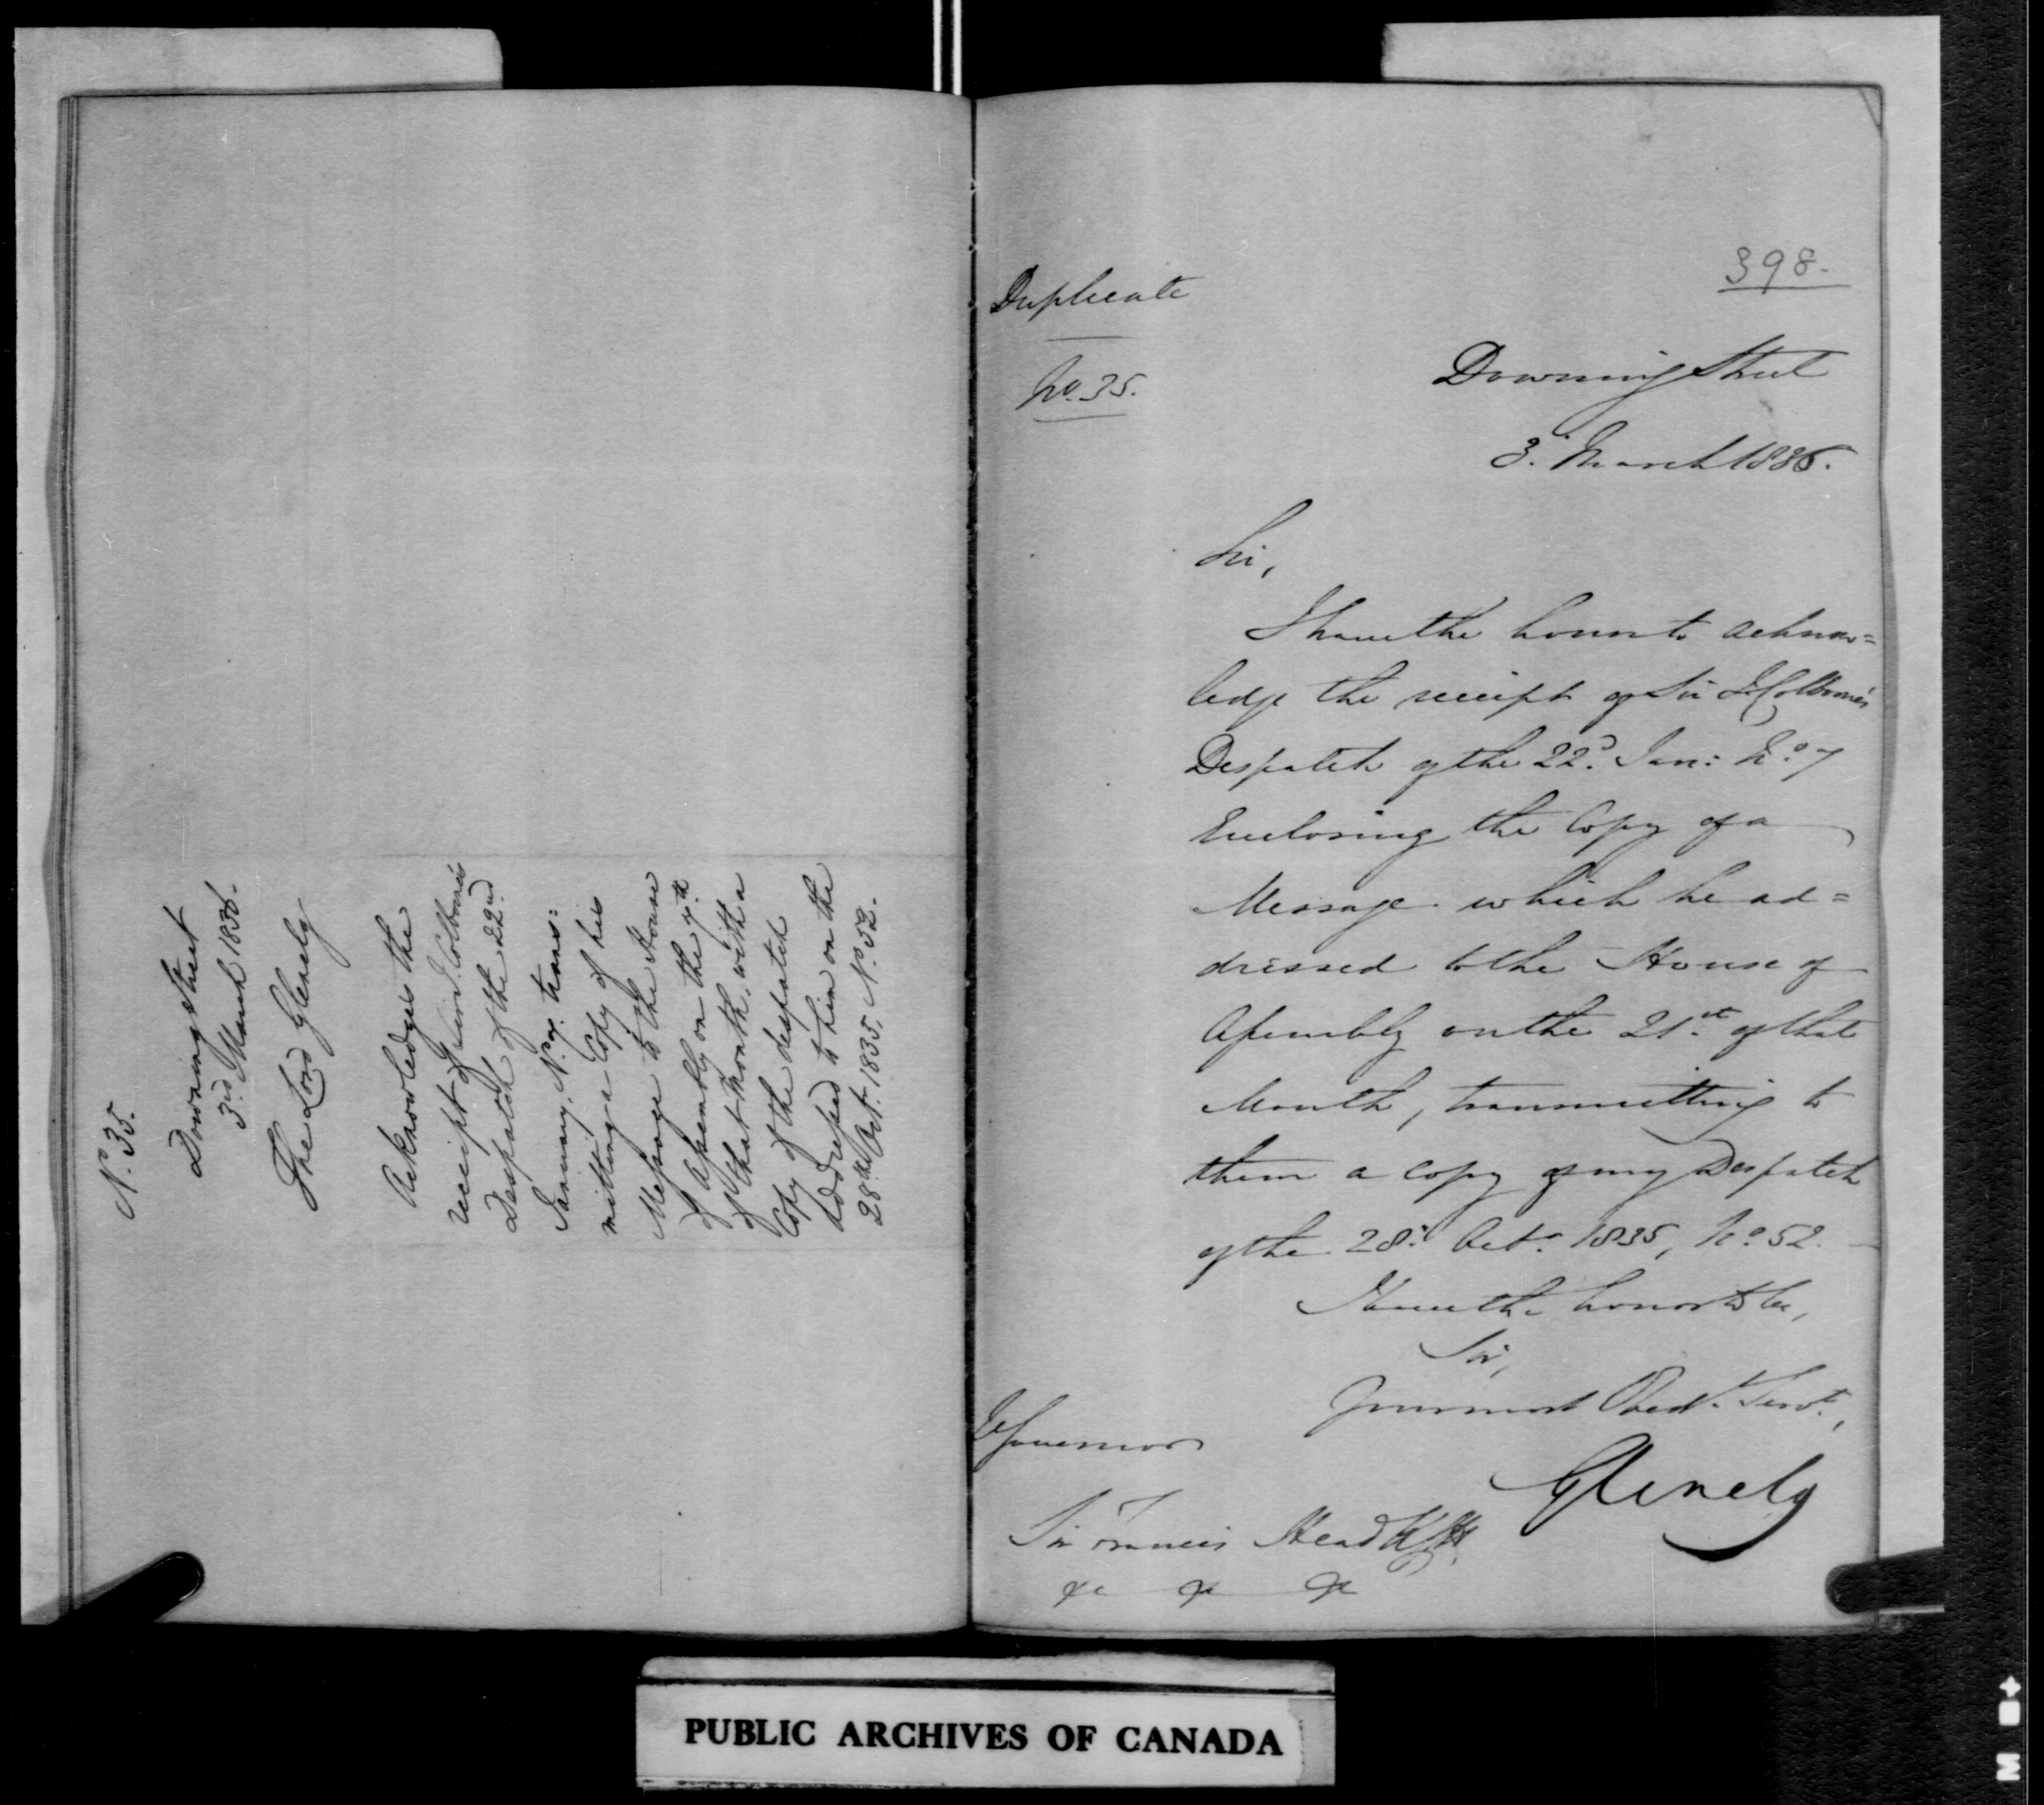 Nº 35.
Downing Street
3rd March 1836.
The Lord Glenelg
Acknowledges the
receipt of Sir J. Colborne's
Despatch of the 22nd
January, Nº 7. trans=
mitting a Copy of his
Message to the House
of Assembly on the 7th
of that Month, with a
Copy of the despatch
addressed to him on the
28th Oct. 1835, Nº 52.
398.
Duplicate
No. 35.
Downing Street
3. March 1836.
Sir,
I have the honor to acknow=
ledge the receipt of Sir J. Colborne's
Despatch of the 22d. Jan: No. 7
Enclosing the Copy of a
Message which he ad=
dressed to the House of
Assembly on the 21st. of that
Month, transmitting to
them a copy of my Despatch
of the 28. Octo. 1835, No. 52.
I have the honor to be,
Sir,
Your most Obedt. Servt.,
Glenelg
Lt Governor
Sir Francis Head K.C.H.
&c &c &c
PUBLIC ARCHIVES OF CANADA